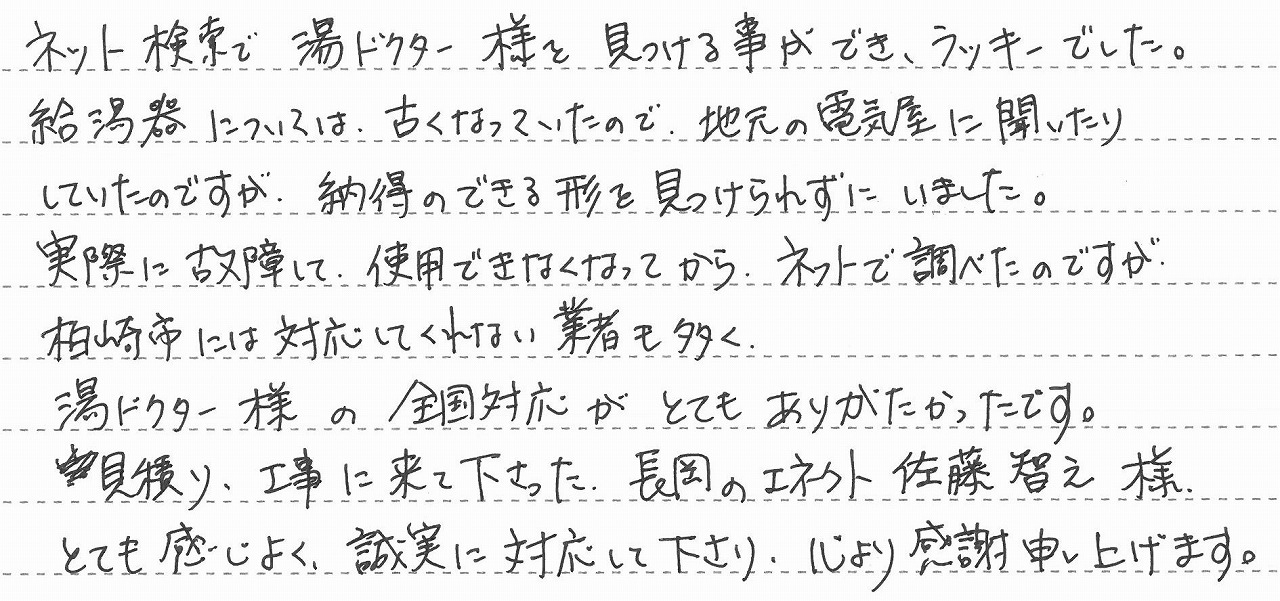 ネット検索で 湯ドクター 様を 見つける事ができ、ラッキーでした。
給湯器については、古くなっていたので、地元の電気屋に聞いたり
していたのですが、納得のできる形を見つけられずに いました。
実際に故障して、使用できなくなってから、ネットで調べたのですが、
柏崎市には対応してくれない業者も多く、
湯ドクター 様 の 全国対応が とても ありがたかったです。
見積り、工事に来て下さった、長岡のエネクト 佐藤 智之 様、
とても感じよく、誠実に対応して下さり、心より感謝申し上げます。